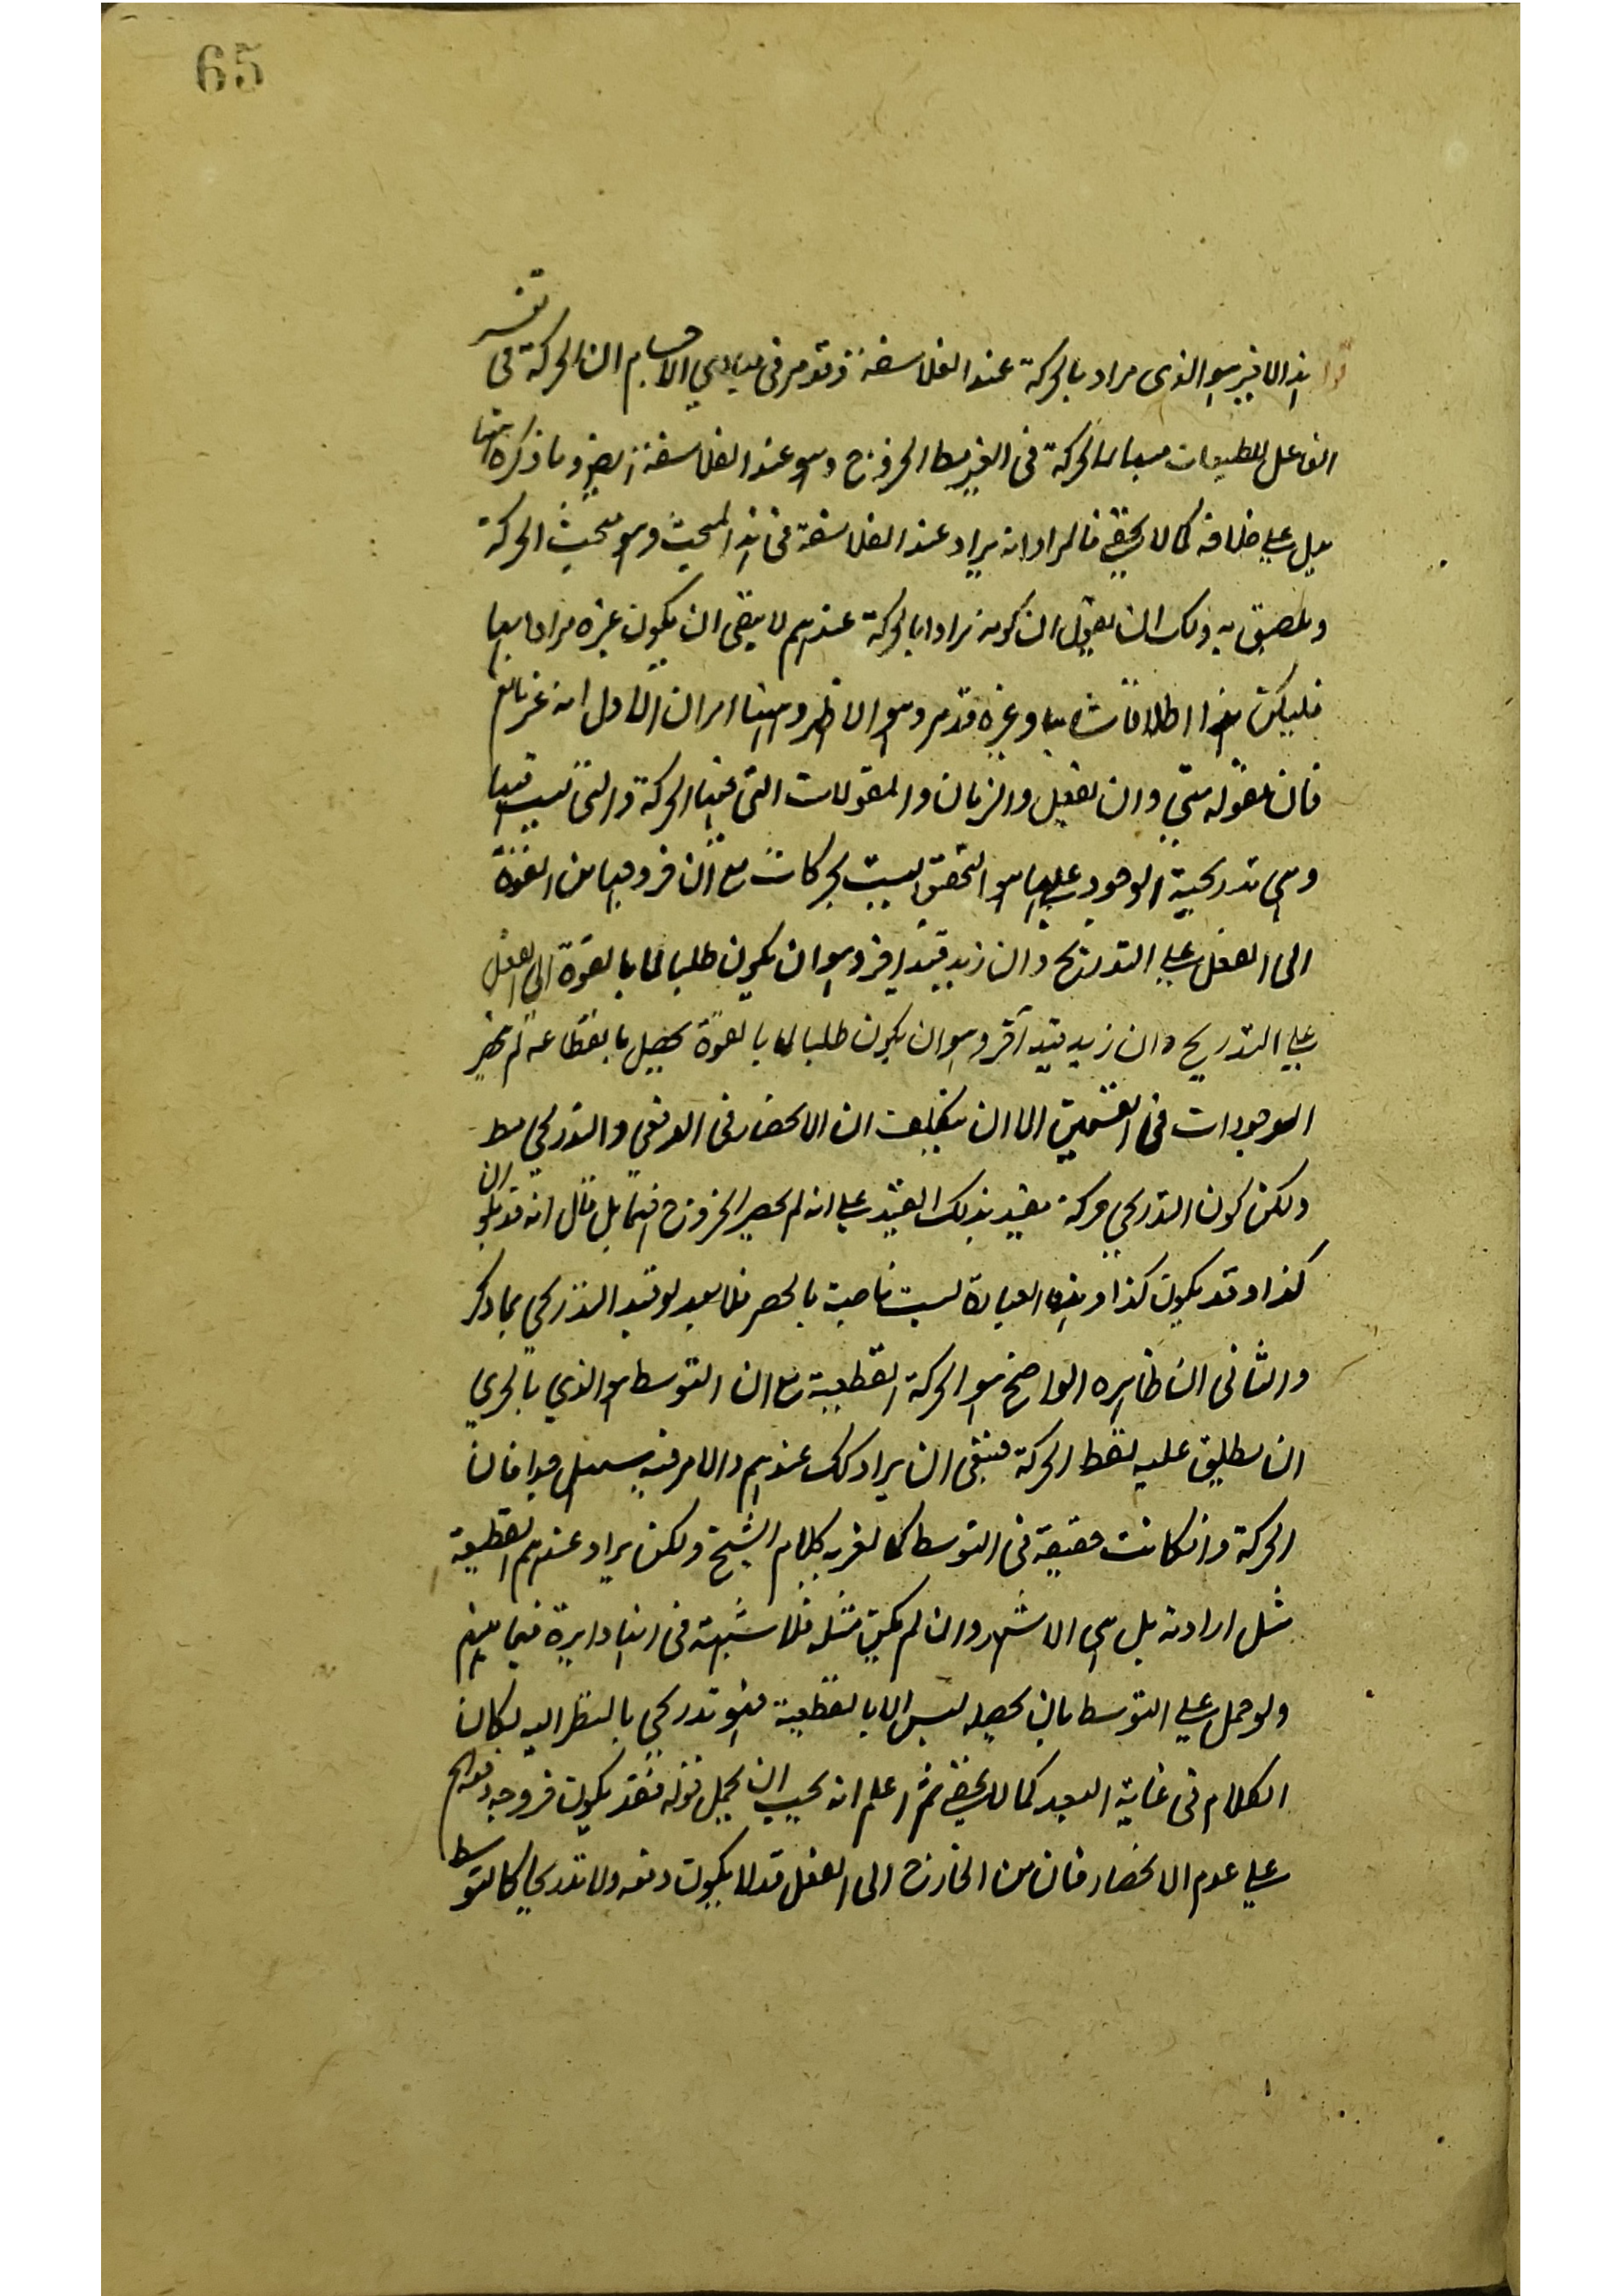 65
هذا الاخير هو الذي مراد بالحركة عند الفلاسفة وقد مر في مبادي الاجسام ان الحركة في تفسير
الفاعل للطبيعات مبدأ الحركة في الخروج وهو عند الفلاسفة ايضا وما ذكره ههنا
يدل على خلافه كما لا يخفى فالمراد انه يراد عند الفلاسفة في هذا المبحث وهو مبحث الحركة
به وذلك ان نقول ان كونه مرادا بالحركة عندهم لا ينفى ان يكون غيره مرادا بها
فليكن هذا اطلاقا شايعا وغيره قد مر وهو الاظهر وههنا امران الاول انه غير مانع
فان مقولة متى وان يفعل والزمان والمقولات التي فيها الحركة والتي ليست فيها
وهي تدريجية الوجود على ما هو التحقيق ليست بحركات مع ان خروجها من القوة
الى الفعل على التدريج وان زيد قيد اخر وهو ان يكون طلبا لما بالقوة الى الفعل
على التدريج وان زيد قيد آخر وهو ان يكون طلبا لما بالقوة يحصل بانقطاعه لم تنحصر
الموجودات في القسمين الا ان يتكلف ان الانحصار في الدفعي والتدريجي
ولكن كون التدريجي حركة مقيد بذلك القيد على انه لم يحصر الخروج فيهما بل قال انه قد يكون
كذا وقد يكون كذا وهذه العبارة ليست ناصة بالحصر فلا بعد لو قيد التدريجي بما ذكر
والثاني ان ظاهره الواضح هو الحركة القطعية مع ان التوسط هو الذي بالحري
ان يطلق عليه لفظ الحركة فينبغي ان يراد كك عندهم والامر فيه سهل جدا فان
الحركة وان كانت حقيقة في التوسط كلام الشيخ ولكن يراد عندهم القطعية
مثل ارادته بل هي الاشهر وان لم يكن مثله فلا شبهة في انها دايرة فيما بينهم
ولو حمل على التوسط بان تحصله ليس الا بالقطعية فهو تدريجي بالنظر اليه لكان
الكلام في غاية البعد كما لا يخفى ثم اعلم انه يجب ان يحمل قوله فقد يكون خروجه دفعة الخ
على عدم الانحصار فان من الخارج الى الفعل قد لا يكون دفعة ولا تدريجيا كالتوسط